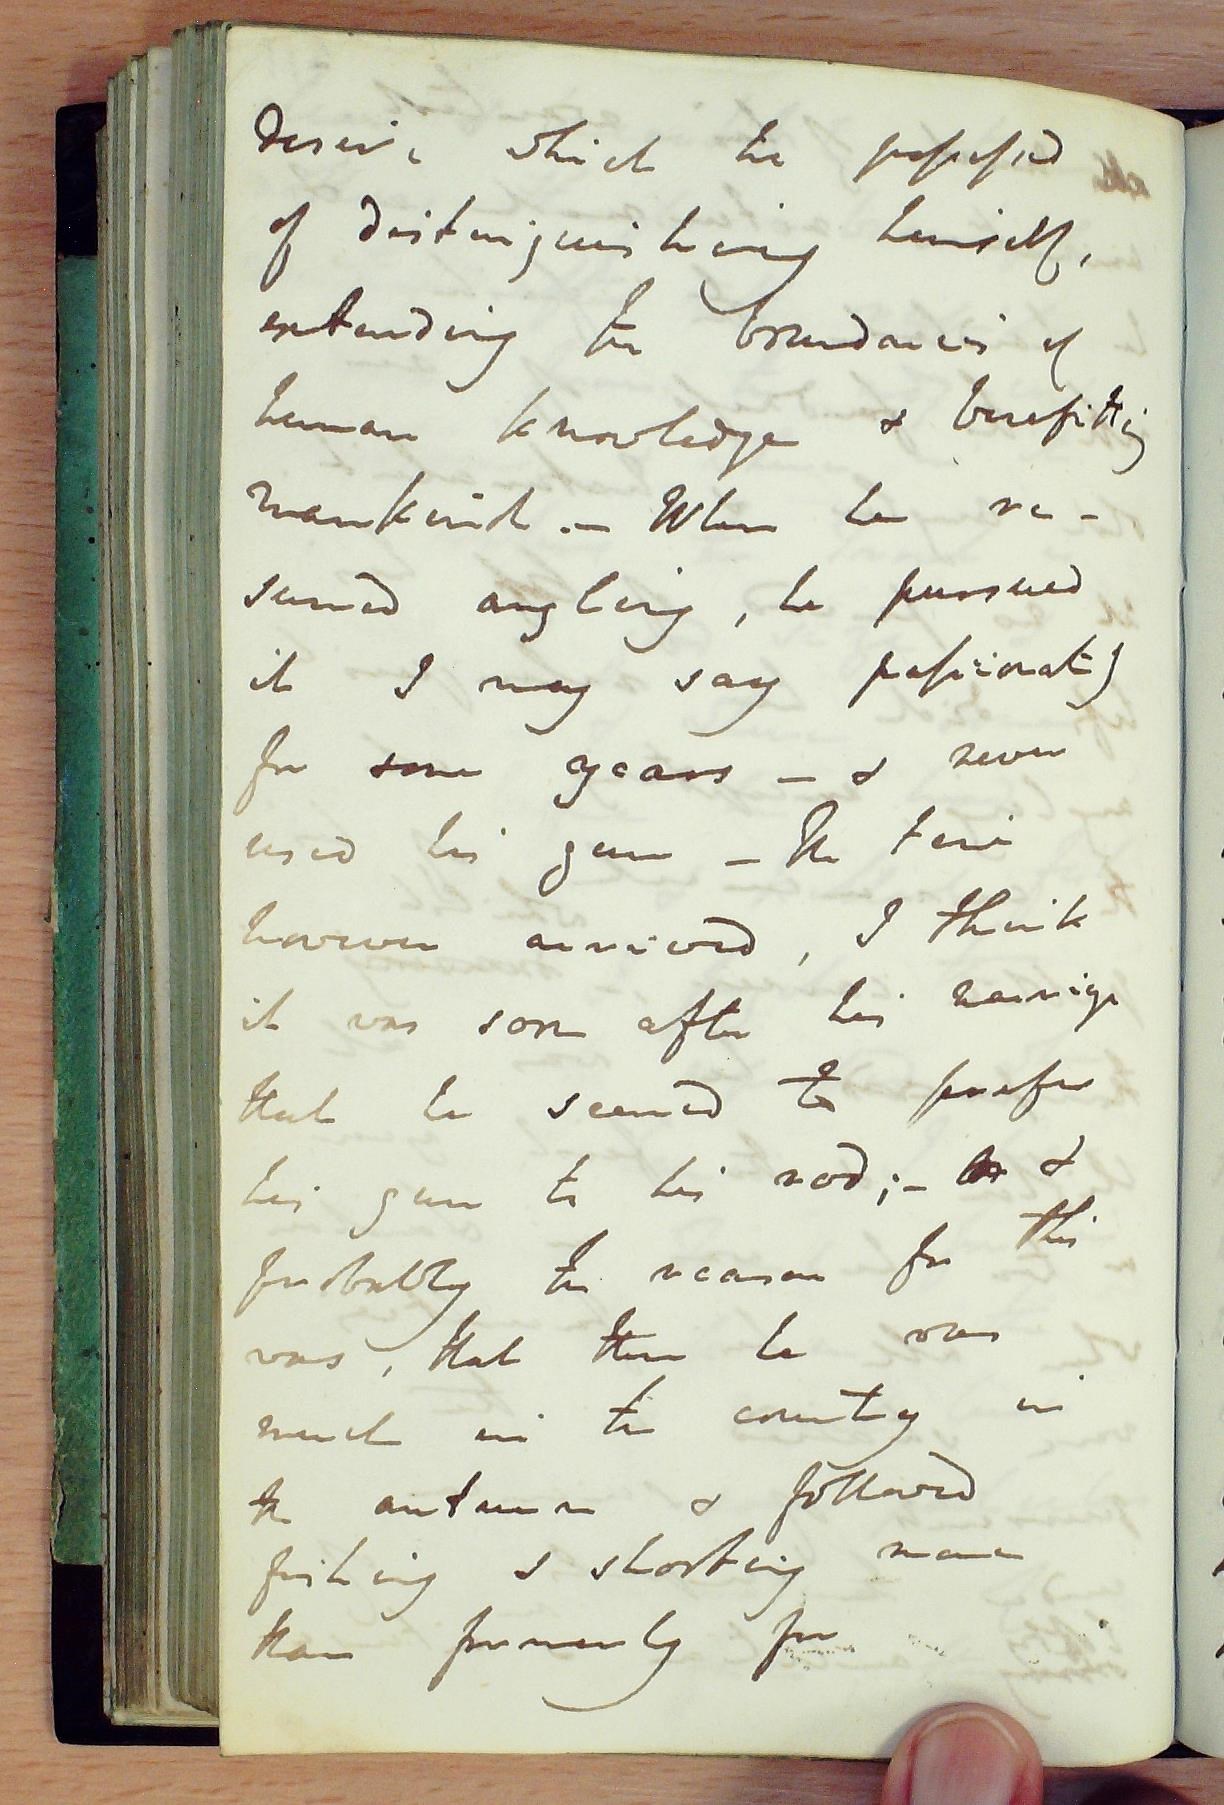 desire which he possessed
of distinguishing himself,
extending the boundaries of
human knowledge & benefitting
mankind. – When he re-
sumed angling, he pursued
it I may say passionately
for some years – & never
used his gun – The time
however arrived, I think
it was soon after his marriage
that he seemed to prefer
his gun to his rod; – &
probably the reason for this
was, that then he was
much in the country in
the autumn & followed
fishing & shooting more
than formerly for